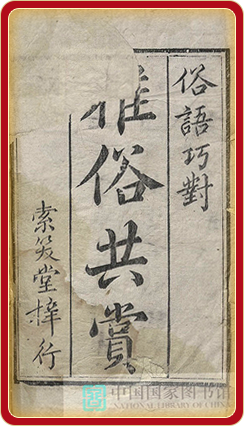 俗語巧對
雅俗共賞
索笑堂梓行
中国国家图书馆
NATIONAL LIBRARY OF CHINA